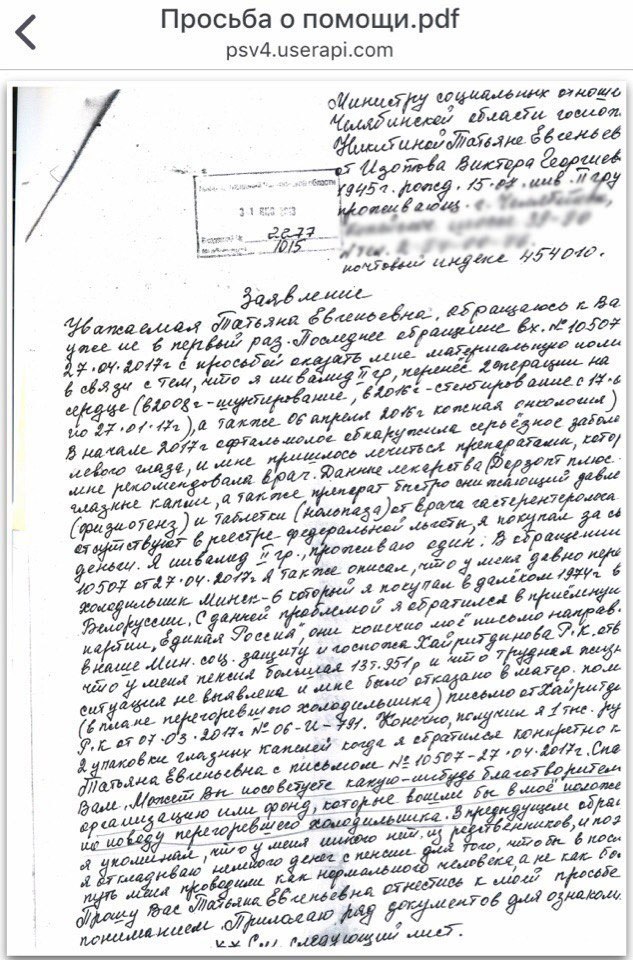 Просьба о помощи.pdf
psv4.userapi.com
Министру социальных отнош
Челябинской области госпож
Никитиной Татьяне Евгеньев
от Изотова Виктора Георгиев
1945г. рожд. 15.07. инв. II гру
проживающ. г. Челябинск,
почтовый индекс 454010.
2277
1015
Заявление
Уважаемая Татьяна Евгеньевна, обращаюсь к Ва
уже не в первый раз. Последнее обращение вх. № 10507
27.04.2017г с просьбой оказать мне материальную пом
в связи с тем, что я инвалид II гр, перенёс 2 операции на
сердце (в 2008г - шунтирование, в 2016г - стентирование с 17.
по 27.01.17г), а также 06 апреля 2016г кожная онкология)
В начале 2017г офтальмолог обнаружила серьёзное забол
левого глаза, и мне пришлось лечиться препаратами, котор
мне рекомендовала врач. Данные лекарства (Дорзопт плюс -
глазные капли, а также препарат быстро снижающий давле
(физиотенз) и таблетки (нольпаза) от врача гастерентеролога
отсутствуют в реестре федеральной льготы, я покупал за св
деньги. Я инвалид II гр., проживаю один. В обращении
10507 от 27.04.2017г я также описал, что у меня давно пере
холодильник Минск-6 который я покупал в далёком 1974г в
Белоруссии. С данной проблемой я обратился в приёмную
партии "Единая Россия", они конечно моё письмо направ
в наше Мин. соц. защиту и госпожа Хайритдинова Р.К. отв
что у меня пенсия большая 13т.951р и что трудная жизн
ситуация не выявлена и мне было отказано в матер. пом
(в плане перегоревшего холодильника) письмо от Хайритди
Р.К от 07.03.2017г № 06-И-791. Конечно, получил я 1 тыс. ру
2 упаковки глазных капелей когда я обратился конкретно к
Татьяна Евгеньевна с письмом № 10507-27.04.2017г. Спа
Вам. Может Вы посоветуете какую-нибудь благотворител
организацию или фонд, которые вошли бы в моё положе
по поводу перегоревшего холодильника. В предыдущем обращ
я упоминал, что у меня никого нет из родственников, и поэ
я откладываю немного денег с пенсии для того, чтобы в посл
путь меня проводили как нормального человека, а не как бо
Прошу Вас Татьяна Евгеньевна отнестись к моей просьбе
пониманием. Прилагаю ряд документов для ознаком
см. следующий лист.